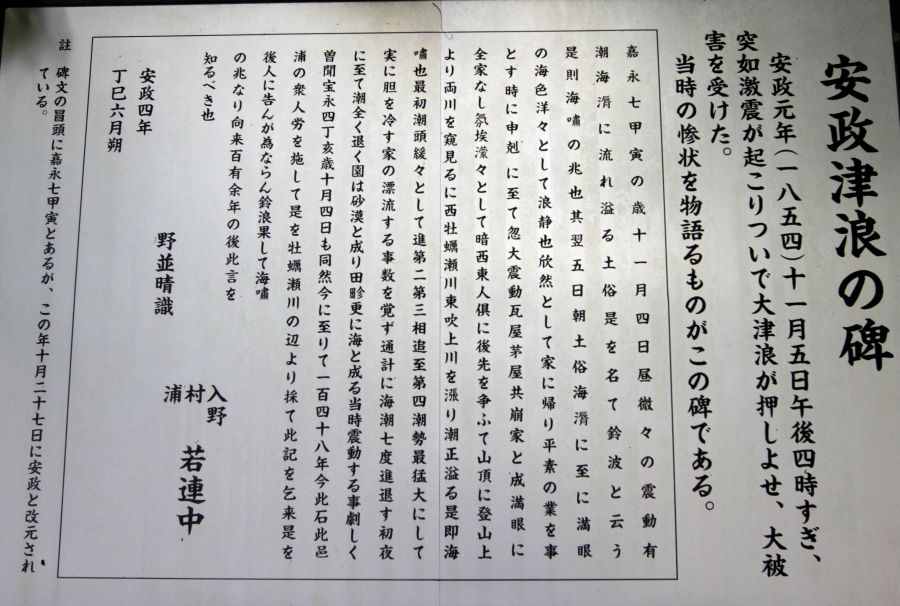 安政津浪の碑
安政元年(一八五四)十一月五日午後四時すぎ、
突如激震が起こりついで大津浪が押しよせ、大被
害を受けた。
当時の惨状を物語るものがこの碑である。
嘉永七甲寅の歳十一月四日昼微々の震動有
潮海滣に流れ溢る土俗是を名て鈴波と云う
是則海嘯の兆也其翌五日朝土俗海滣に至に満眼
の海色洋々として浪静也欣然として家に帰り平素の業を事
とす時に申剋に至て忽大震動瓦屋茅屋共崩家と成満眼に
全家なし氛埃濛々として暗西東人倶に後先を争ふて山頂に登山上
より両川を窺見るに西牡蠣瀬川東吹上川を漲り潮正溢る是即海
嘯也最初潮頭緩々として進第二第三相追至第四潮勢最猛大にして
実に胆を冷す家の漂流する事数を覚ず通計に海潮七度進退す初夜
に至て潮全く退く園は砂漠と成り田畛更に海と成る当時震動する事劇しく
曽聞宝永四丁亥歳十月四日も同然今に至りて一百四十八年今此石此邑
浦の衆人労を施して是を牡蠣瀬川の辺より採て此記を乞来是を
後人に告んが為ならん鈴浪果して海嘯
の兆なり向来百有余年の後此言を
知るべき也
安政四年
丁巳六月朔
野並晴識
入野
村浦
若連中
註 碑文の冒頭に嘉永七甲寅とあるが、この年十月二十七日に安政と改元され
ている。